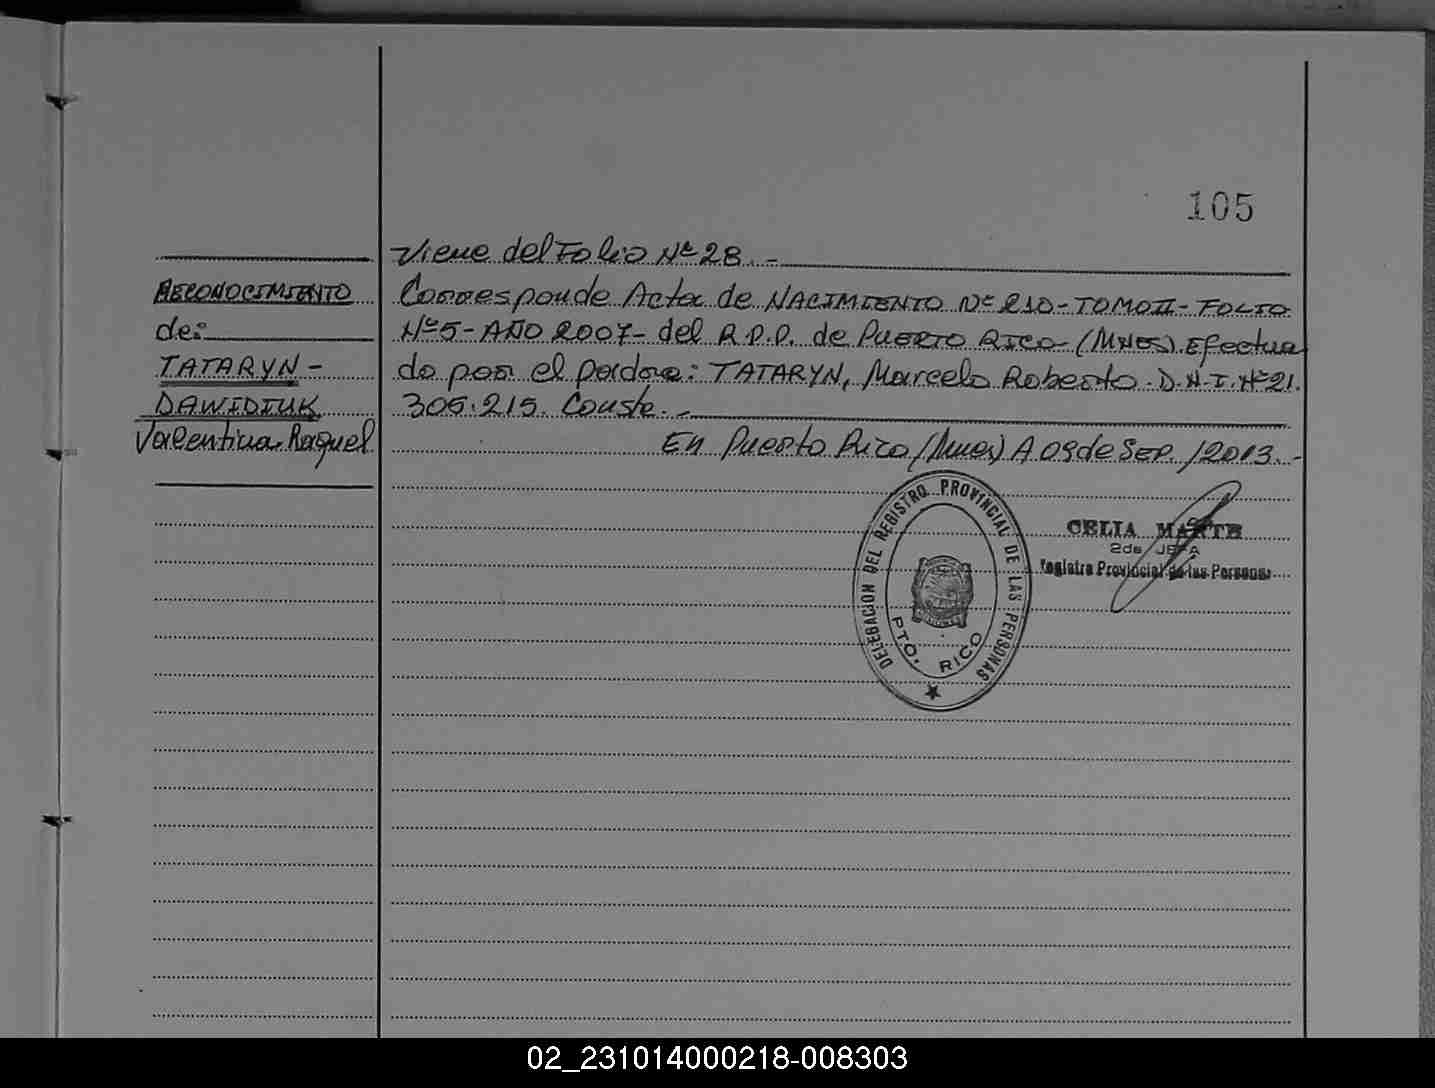 105
Viene del Folio Nº 28. -
RECONOCIMIENTO
de:
TATARYN -
DAWIDIUK
Valentina Raquel
Corresponde Acta de NACIMIENTO Nº 210 - TOMO II - FOLIO
Nº 5 - AÑO 2007 - del R.P.P. de PUERTO RICO - (MNES) Efectua
do por el padre: TATARYN, Marcelo Roberto. D.N.I. Nº 21.
305.215. Conste. -
En Puerto Rico (Mnes) A 09 de SEP. /2013. -
DELEGACION DEL REGISTRO PROVINCIAL DE LAS PERSONAS
PTO. RICO
CELIA MARTE
2da JEFA
Registro Provincial de las Personas
02_231014000218-008303